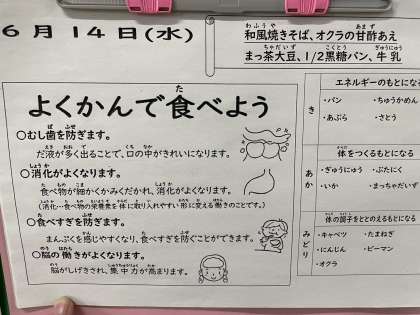 6月14日(水)
わふうや あまず
和風焼きそば、オクラの甘酢あえ
ちゃだいず こくとう ぎゅうにゅう
まっ茶大豆、1/2黒糖パン、牛乳
た
よくかんで食べよう
○むし歯を防ぎます。
だ液が多く出ることで、口の中がきれいになります。
○消化がよくなります。
食べ物が細かくかみくだかれ、消化がよくなります。
(消化…食べ物の栄養素を体に取り入れやすい形に変える働きのことです。)
○食べすぎを防ぎます。
まんぷくを感じやすくなり、食べすぎを防ぐことができます。
○脳の働きがよくなります。
脳がしげきされ、集中力が高まります。
エネルギーのもとになる
き
・パン ・ちゅうかめん
・あぶら ・さとう
体をつくるもとになる
あか
・ぎゅうにゅう ・ぶたにく
・いか ・まっちゃだいず
体の調子をととのえるもとになる
みどり
・キャベツ ・たまねぎ
・にんじん ・ピーマン
・オクラ